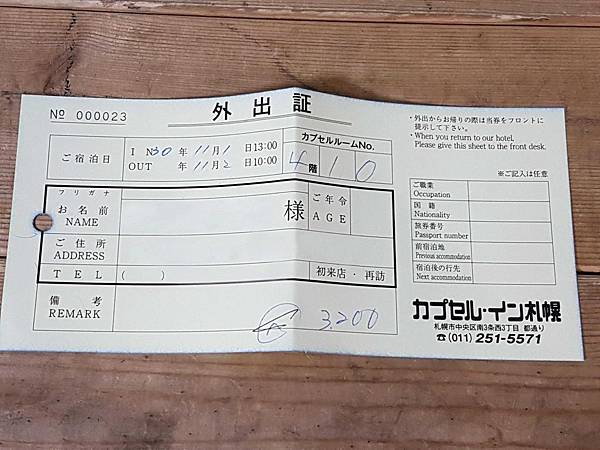 № 000023
外出証
ご宿泊日
IN 30年 11月 1日 13:00
OUT 年 11月 2日 10:00
カプセルルームNo.
4階 10
フリガナ
お名前
NAME
様
ご年令
AGE
ご住所
ADDRESS
TEL ( )
初来店・再訪
備考
REMARK
3,200
・外出からお帰りの際は当券をフロントに
提示して下さい。
・When you return to our hotel,
Please give this sheet to the front desk.
※ご記入は任意
ご職業
Occupation
国籍
Nationality
旅券番号
Passport number
前宿泊地
Previous accommodation
宿泊後の行先
Next accommodation
カプセル・イン札幌
札幌市中央区南3条西3丁目 都通り
☎(011) 251-5571